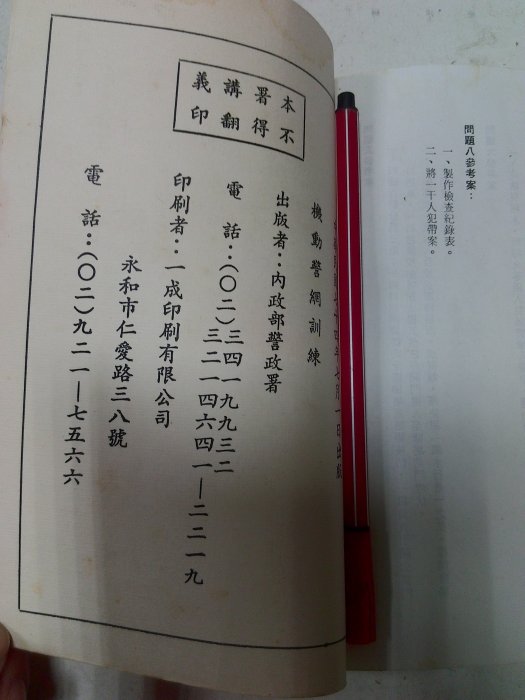 問題八參考案：
一、製作檢查紀錄表。
二、將一干人犯帶案。
本署講義
不得翻印
月一日出版
機動警網訓練
出版者：內政部警政署
電話：（〇二）三四一九九三二
三二一四六四一—二二一九
印刷者：一成印刷有限公司
永和市仁愛路三八號
電話：（〇二）九二一—七五六六